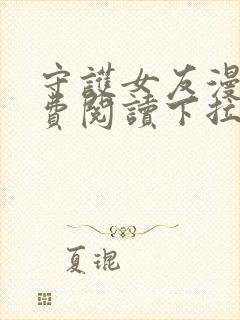 守護女友漫
費閱讀下拉
夏琨